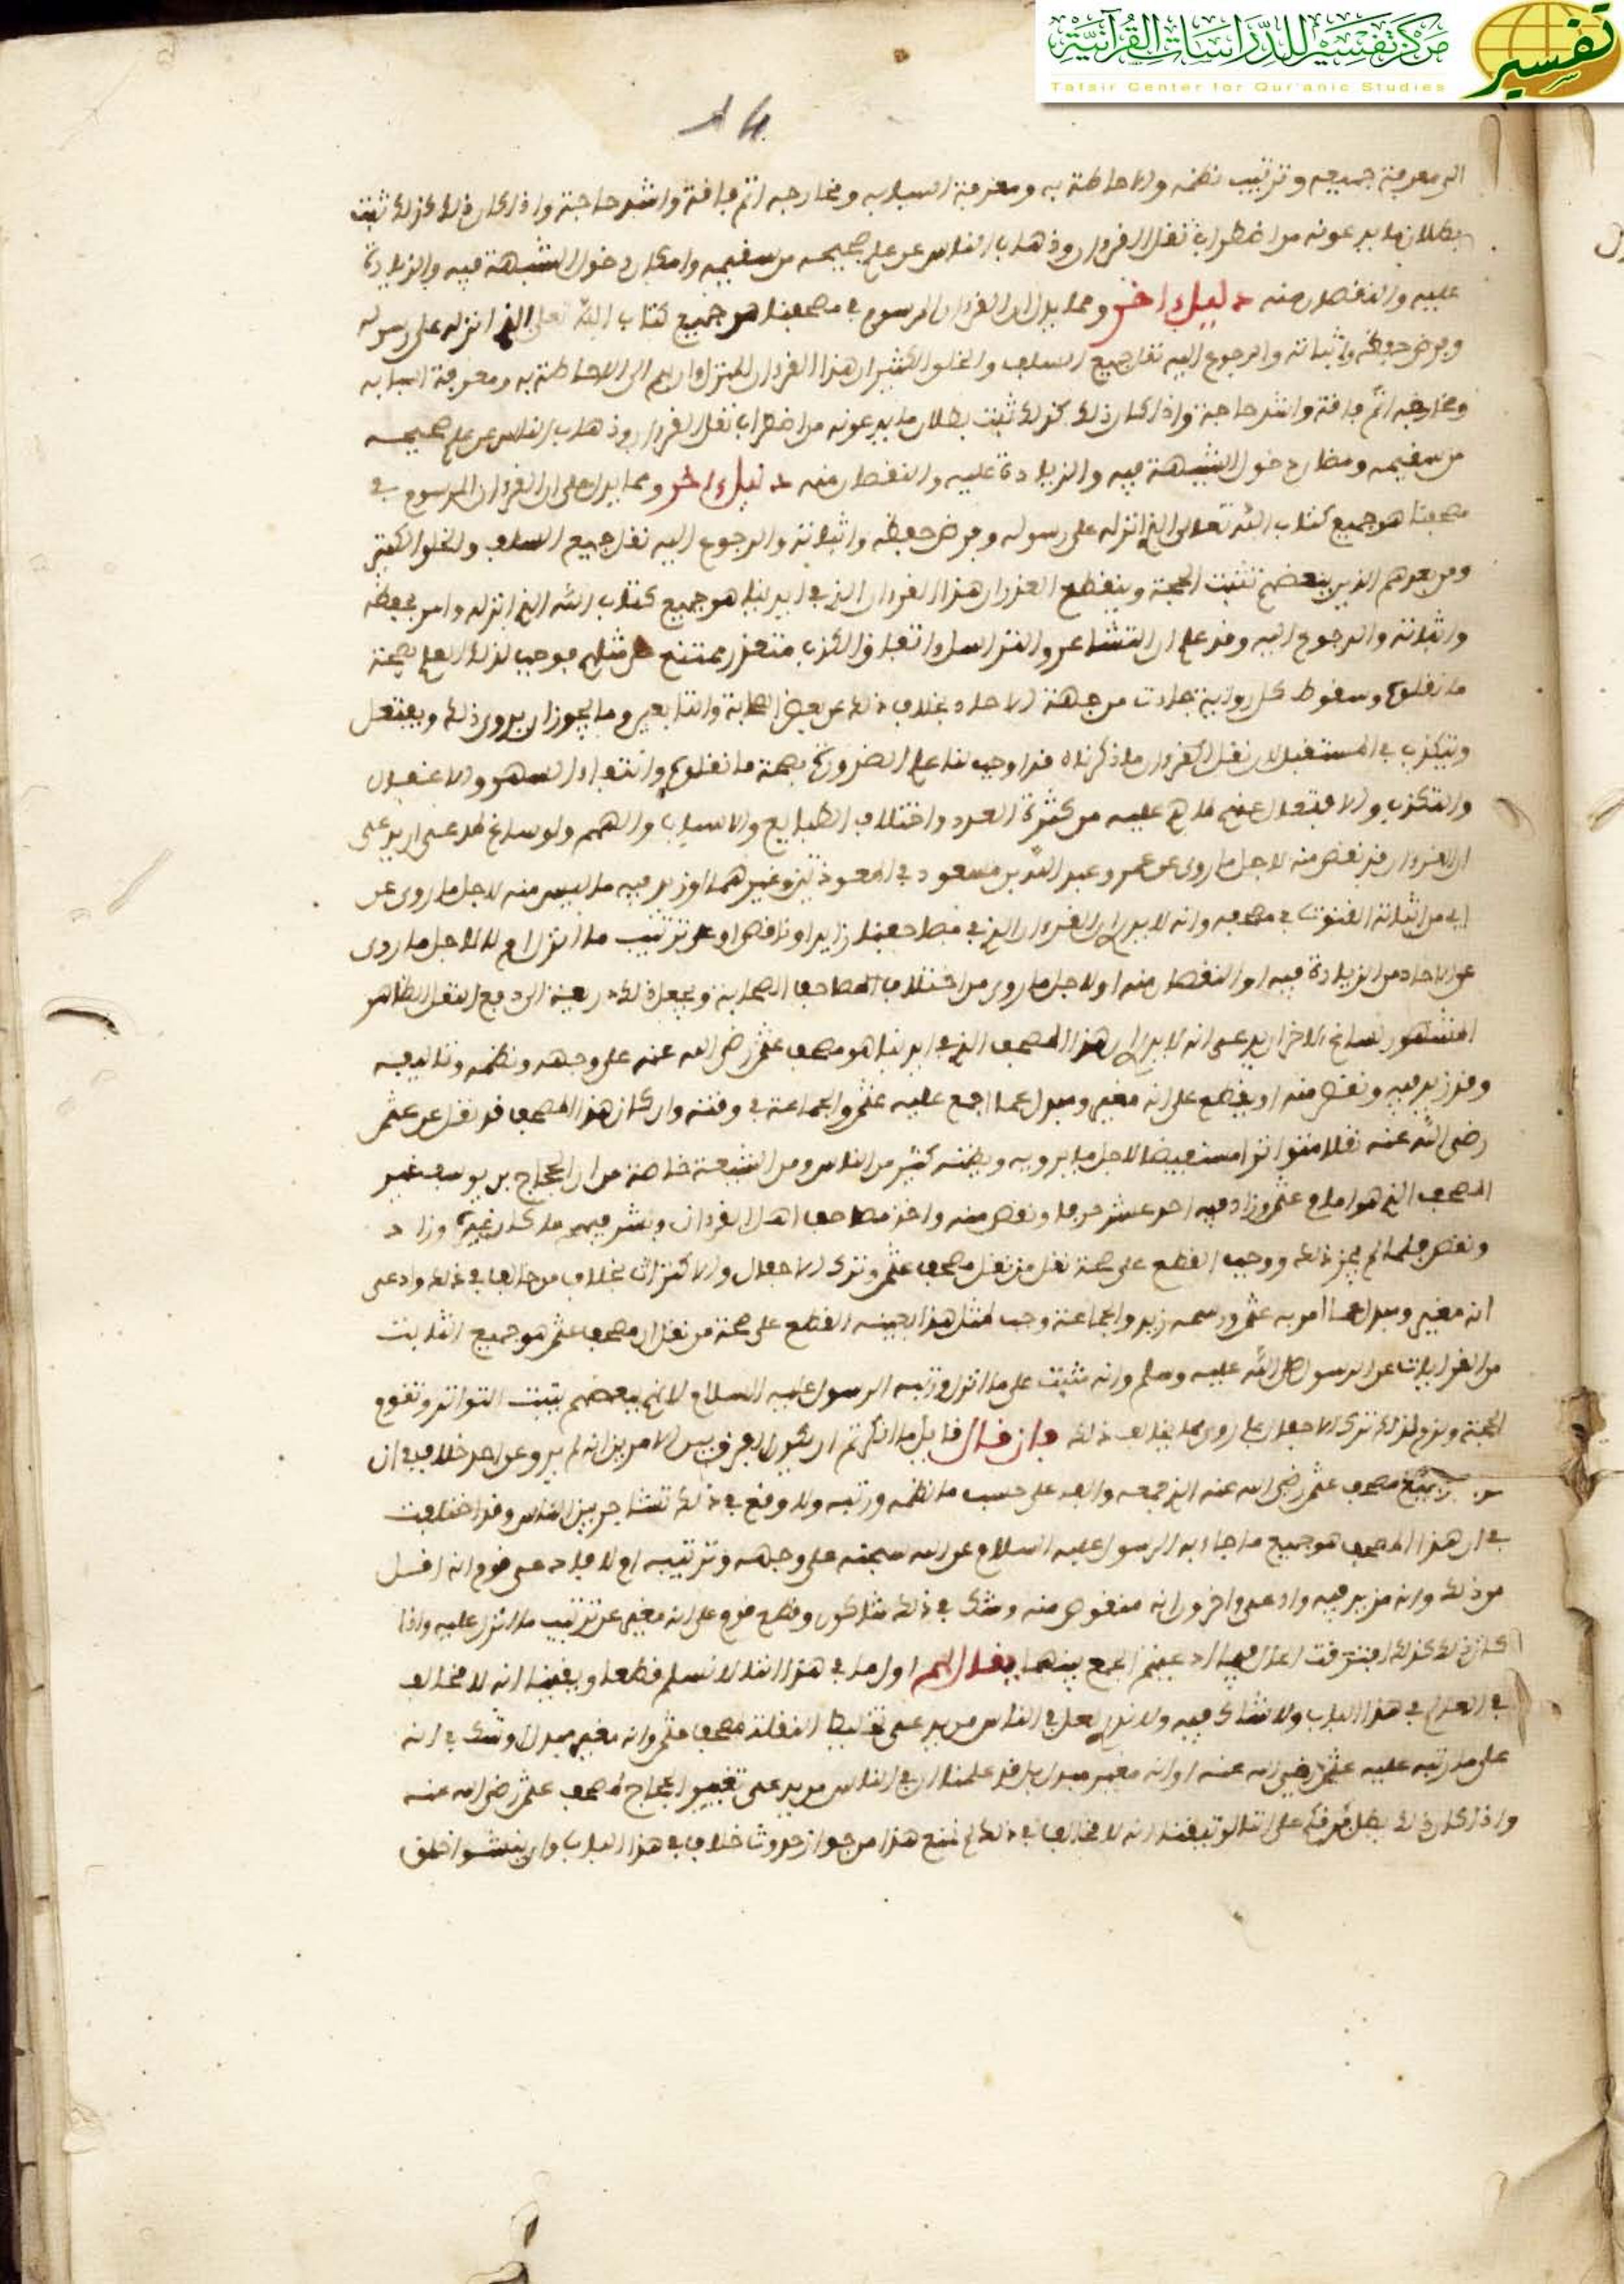 مركز تفسير للدراسات القرآنية
Tafsir Center for Qur'anic Studies
تفسير
الى معرفة جميعه وترتيب نظمه والاحاطة به ومعرفة اسبابه ومخارجه اتم فاقة واشد حاجة واذا كان ذلك كذلك ثبت
بطلان ما يدعونه من اضطراب نقل القرءان وذهاب الناس عن علم صحيحه من سقيمه وامكان دخول الشبهة فيه والزيادة
عليه والنقصان منه دليل ءاخر ومما يدل ان القرءان المرسوم في مصحفنا هو جميع كتاب الله تعالى الذي انزله على رسوله
وفرض حفظه واثباته والرجوع اليه نقل جميع السلف والخلف الكثير ان هذا القرءان المنزل الى الاحاطة به ومعرفة اسبابه
ومخارجه اتم فاقة واشد حاجة واذا كان ذلك كذلك ثبت بطلان ما يدعونه من اضطراب نقل القرءان وذهاب الناس عن علم صحيحه
من سقيمه ومظان دخول الشبهة فيه والزيادة عليه والنقصان منه دليل ءاخر ومما يدل على ان القرءان المرسوم في
مصحفنا هو جميع كتاب الله تعالى الذي انزله على رسوله وفرض حفظه واثباته والرجوع اليه نقل جميع السلف والخلف الكثير
ومن بعدهم الذين ببعضهم تثبت الحجة وينقطع العذر ان هذا القرءان الذي في ايدينا هو جميع كتاب الله الذي انزله وامر بحفظه
واثباته والرجوع اليه وقد علم ان التشاعر والتراسل واتفاق الكذب متعذر ممتنع على مثلهم فوجب لذلك العلم بصحة
ما نقلوه وسقوط كل رواية جاءت من جهة الاحاد بخلاف ذلك عن بعض الصحابة والتابعين وما يجوز ان يروى ذلك ويفتعل
ويتكذب في المستقبل لان نقل القرءان ما ذكرناه قد اوجب لنا علم الضرورة بصحة ما نقلوه وانتفاء السهو والاغفال
والتكذب والافتعال عنهم لما هم عليه من كثرة العدد واختلاف الطبايع والاسباب والهمم ولو ساغ لمدعي ان يدعي
ان القرءان قد نقص منه لاجل ما روى عن عمر وعبد الله بن مسعود في المعوذتين وغيرهما او زيد فيه ما ليس منه لاجل ما روى عن
ابي من اثباته القنوت في مصحفه وانه لا يدرى ان القرءان الذي في مصاحفنا زايد او ناقص او على ترتيب ما انزل ام لا لاجل ما روى
عن الاحاد من الزيادة فيه او النقصان منه او لاجل ما روى من اختلاف مصاحف الصحابة ويجعل ذلك ذريعة الى دفع النقل الظاهر
المشهور لساغ لاخر ان يدعي انه لا يدرى ان هذا المصحف الذي في ايدينا هو مصحف عثمن رضي الله عنه على وجهه ونظمه وتاليفه
وقد زيد فيه ونقص منه او يقطع على انه مغير ومبدل عما اجمع عليه عثمن والجماعة في وقته وان كان هذا المصحف قد نقل عن عثمن
رضي الله عنه نقلا متواترا مستفيضا لاجل ما يرويه ويظنه كثير من الناس ومن الشيعة خاصة من ان الحجاج بن يوسف غير
المصحف الذي هو امام عثمن وزاد فيه احد عشر حرفا ونقص منه واخذ مصاحف اهل القرءان ونشر فيهم ما كان غيره وزاد
ونقص فلما لم يجز ذلك ووجب القطع على صحة نقل من نقل مصحف عثمن وترك الاحفال والاكتراث بخلاف من خالف في ذلك وادعى
انه مغير ومبدل عما امر به عثمن ورسمه زيد والجماعة وجب لمثل هذا بعينه القطع على صحة من نقل ان مصحف عثمن هو جميع الثابت
من القراءات عن الرسول صلى الله عليه وسلم وانه مثبت على ما انزل ورتبه الرسول عليه السلام لانهم ببعضهم يثبت التواتر وتقوم
الحجة ولزم لذلك ترك الاحفال بما روي مما يخالف ذلك فان قال قايل ما انكرتم ان يكون الفرق بين الامرين انه لم يرو عن احد خلاف في ان
جميع مصحف عثمن رضي الله عنه الذي جمعه والفه على حسب ما نظمه ورتبه ولا وقع في ذلك تشاجر بين الناس وقد اختلفت
في ان هذا المصحف هو جميع ما جاء به الرسول عليه السلام عن الله سبحنه على وجهه وترتيبه ام لا فادعى قوم انه اقل
من ذلك وانه مزيد فيه وادعى ءاخرون انه منقوص منه وشك في ذلك شاكون وقطع قوم على انه مغير عن ترتيب ما انزل عليه واذا
كان ذلك كذلك افترقت الحال فيما ادعيتم الجمع بينهما يقال لهم اول ما في هذا اننا لا نسلم قطعا ويقينا انه لا مخالف
في العلم في هذا الباب ولا شاك فيه ولا ندري لعل في الناس من يدعي تغليط النقلة لمصحف عثمن وانه مغير مبدل او شك في انه
على ما رتبه عليه عثمن رضي الله عنه او انه مغير مبدل بل قد علمنا ان في الناس من يدعي تغيير الحجاج لمصحف عثمن رضي الله عنه
واذا كان ذلك بطل فرقكم على اننا لو تيقنا انه لا مخالف في ذلك لم يمنع هذا من جواز حدوث خلاف في هذا الباب وان ينشوا خلق